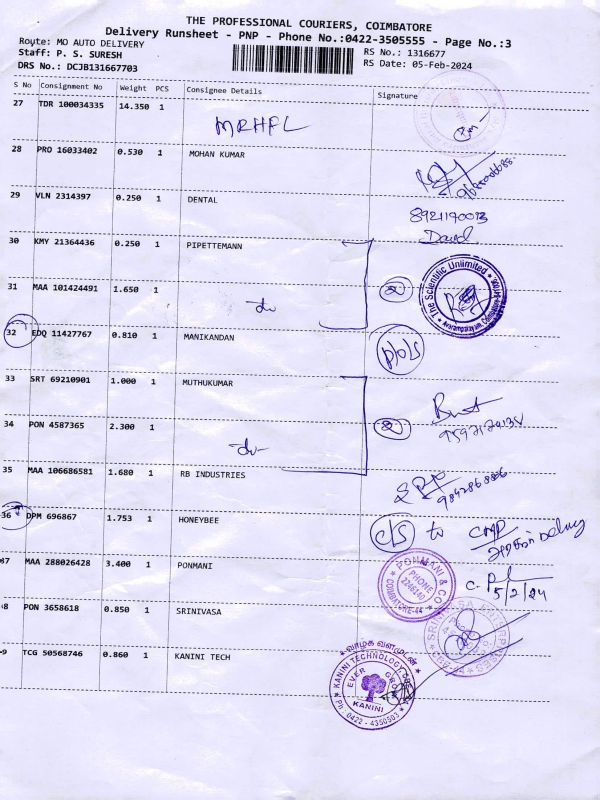 THE PROFESSIONAL COURIERS, COIMBATORE
Delivery Runsheet - PNP - Phone No.:0422-3505555 - Page No.:3
Route: MO AUTO DELIVERY
RS No.: 1316677
Staff: P. S. SURESH
RS Date: 05-Feb-2024
DRS No.: DCJB131667703
S No Consignment No Weight PCS Consignee Details Signature
27 TDR 100034335 14.350 1
MRHFL
28 PRO 16033402 0.530 1 MOHAN KUMAR
29 VLN 2314397 0.250 1 DENTAL
8921190013
David
30 KMY 21364436 0.250 1 PIPETTEMANN
31 MAA 101424491 1.650 1
do
② The Scientific Unlimited
32 EDQ 11427767 0.810 1 MANIKANDAN
D/o/s
33 SRT 69210901 1.000 1 MUTHUKUMAR
34 PON 4587365 2.300 1
do
②
35 MAA 106686581 1.680 1 RB INDUSTRIES
36 DPM 696867 1.753 1 HONEYBEE
C/S to
37 MAA 288026428 3.400 1 PONMANI
PONMANI & CO
PHONE
COIMBATORE-44
5/2/24
38 PON 3658618 0.850 1 SRINIVASA
39 TCG 50568746 0.860 1 KANINI TECH
வாழ்க வளமுடன்
KANINI TECHNOLOGY
EVER
KANINI
Ph: 0422 - 4350503